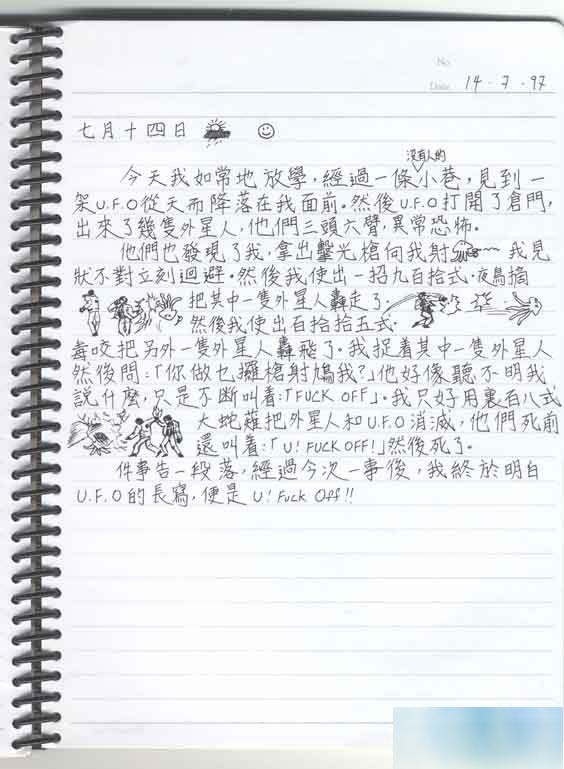 No.
Date 14・7・97
七月十四日
今天我如常地放學，經過一條沒有人的小巷，見到一
架U.F.O從天而降落在我面前。然後U.F.O打開了倉門，
出來了幾隻外星人，他們三頭六臂，異常恐怖。
他們也發現了我，拿出擊光槍向我射 我見
狀不對立刻迴避。然後我使出一招九百拾式·夜鳥摘
把其中一隻外星人轟走了。
然後我使出百拾拾五式·
毒咬把另外一隻外星人轟飛了。我捉着其中一隻外星人
然後問：「你做乜攞槍射鳩我?」他好像聽不明我
說什麼，只是不斷叫着：「FUCK OFF」。我只好用裏百八式
大蛇薙把外星人和U.F.O消滅，他們死前
還叫着：「U! FUCK OFF!」然後死了。
件事告一段落，經過今次一事後，我終於明白
U.F.O的長寫，便是U! Fuck Off!!